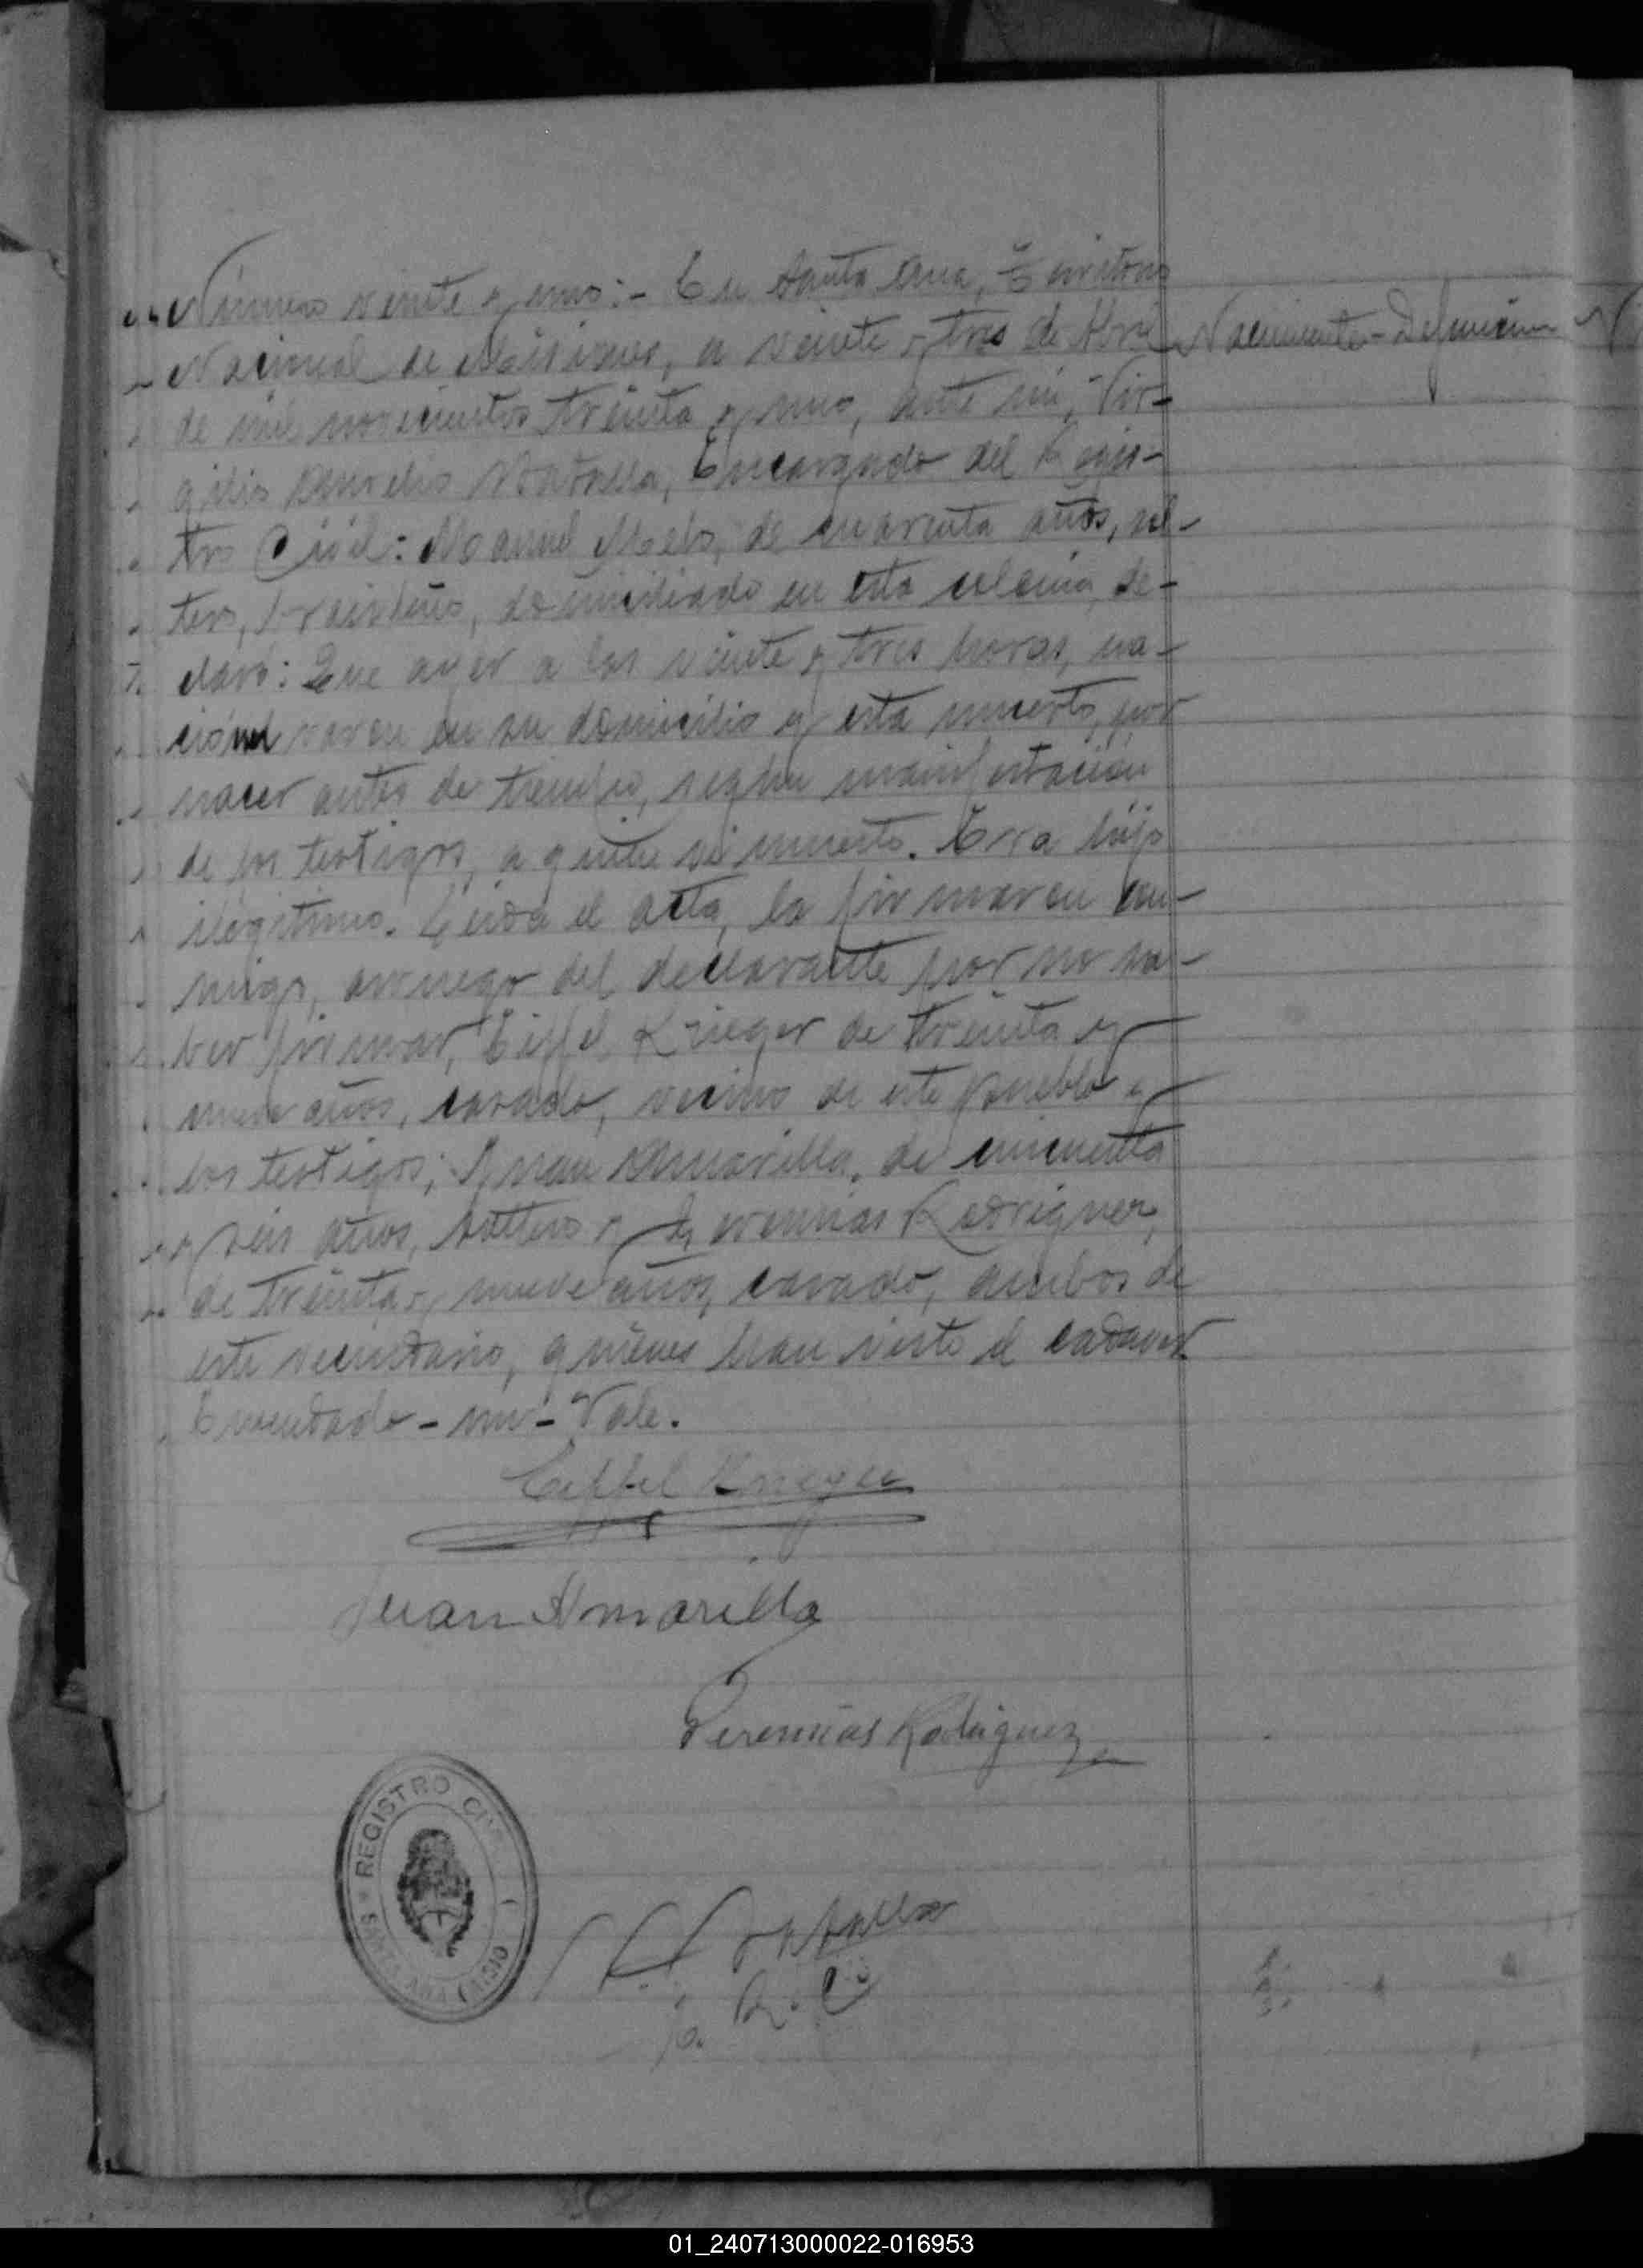 Número veinte y uno:- En Santa Ana, Territorio
Nacional de Misiones, a veinte y tres de Abril
Nacimiento-Defuncion
de mil novecientos treinta y uno, ante mi, Vir-
gilio Aurelio Encargado del Regis-
tro Civil: Manuel Melo, de cuarenta años, sol-
tero, brasileño, domiciliado en esta colonia, de-
claró: Que ayer a las veinte y tres horas, na-
ció un varon en su domicilio y esta muerto, por
nacer antes de tiempo, segun manifestación
de los testigos, a quien vi muerto. Era hijo
ilegitimo. Leida el acta, la firmaron con-
migo, a ruego del declarante por no sa-
ber firmar, Eiffel Krieger de treinta y
nueve años, casado, vecino de este pueblo y
los testigos; Juan Amarilla, de cincuenta
y seis años, soltero y Geremias Rodriguez,
de treinta y nueve años, casado, ambos de
este vecindario, quienes han visto el cadaver
Enmendado - un - Vale.
Eiffel Krieger
Juan Amarilla
Geremias Rodriguez
REGISTRO CIVIL
SANTA ANA (MISIO
R. C.
01_240713000022-016953